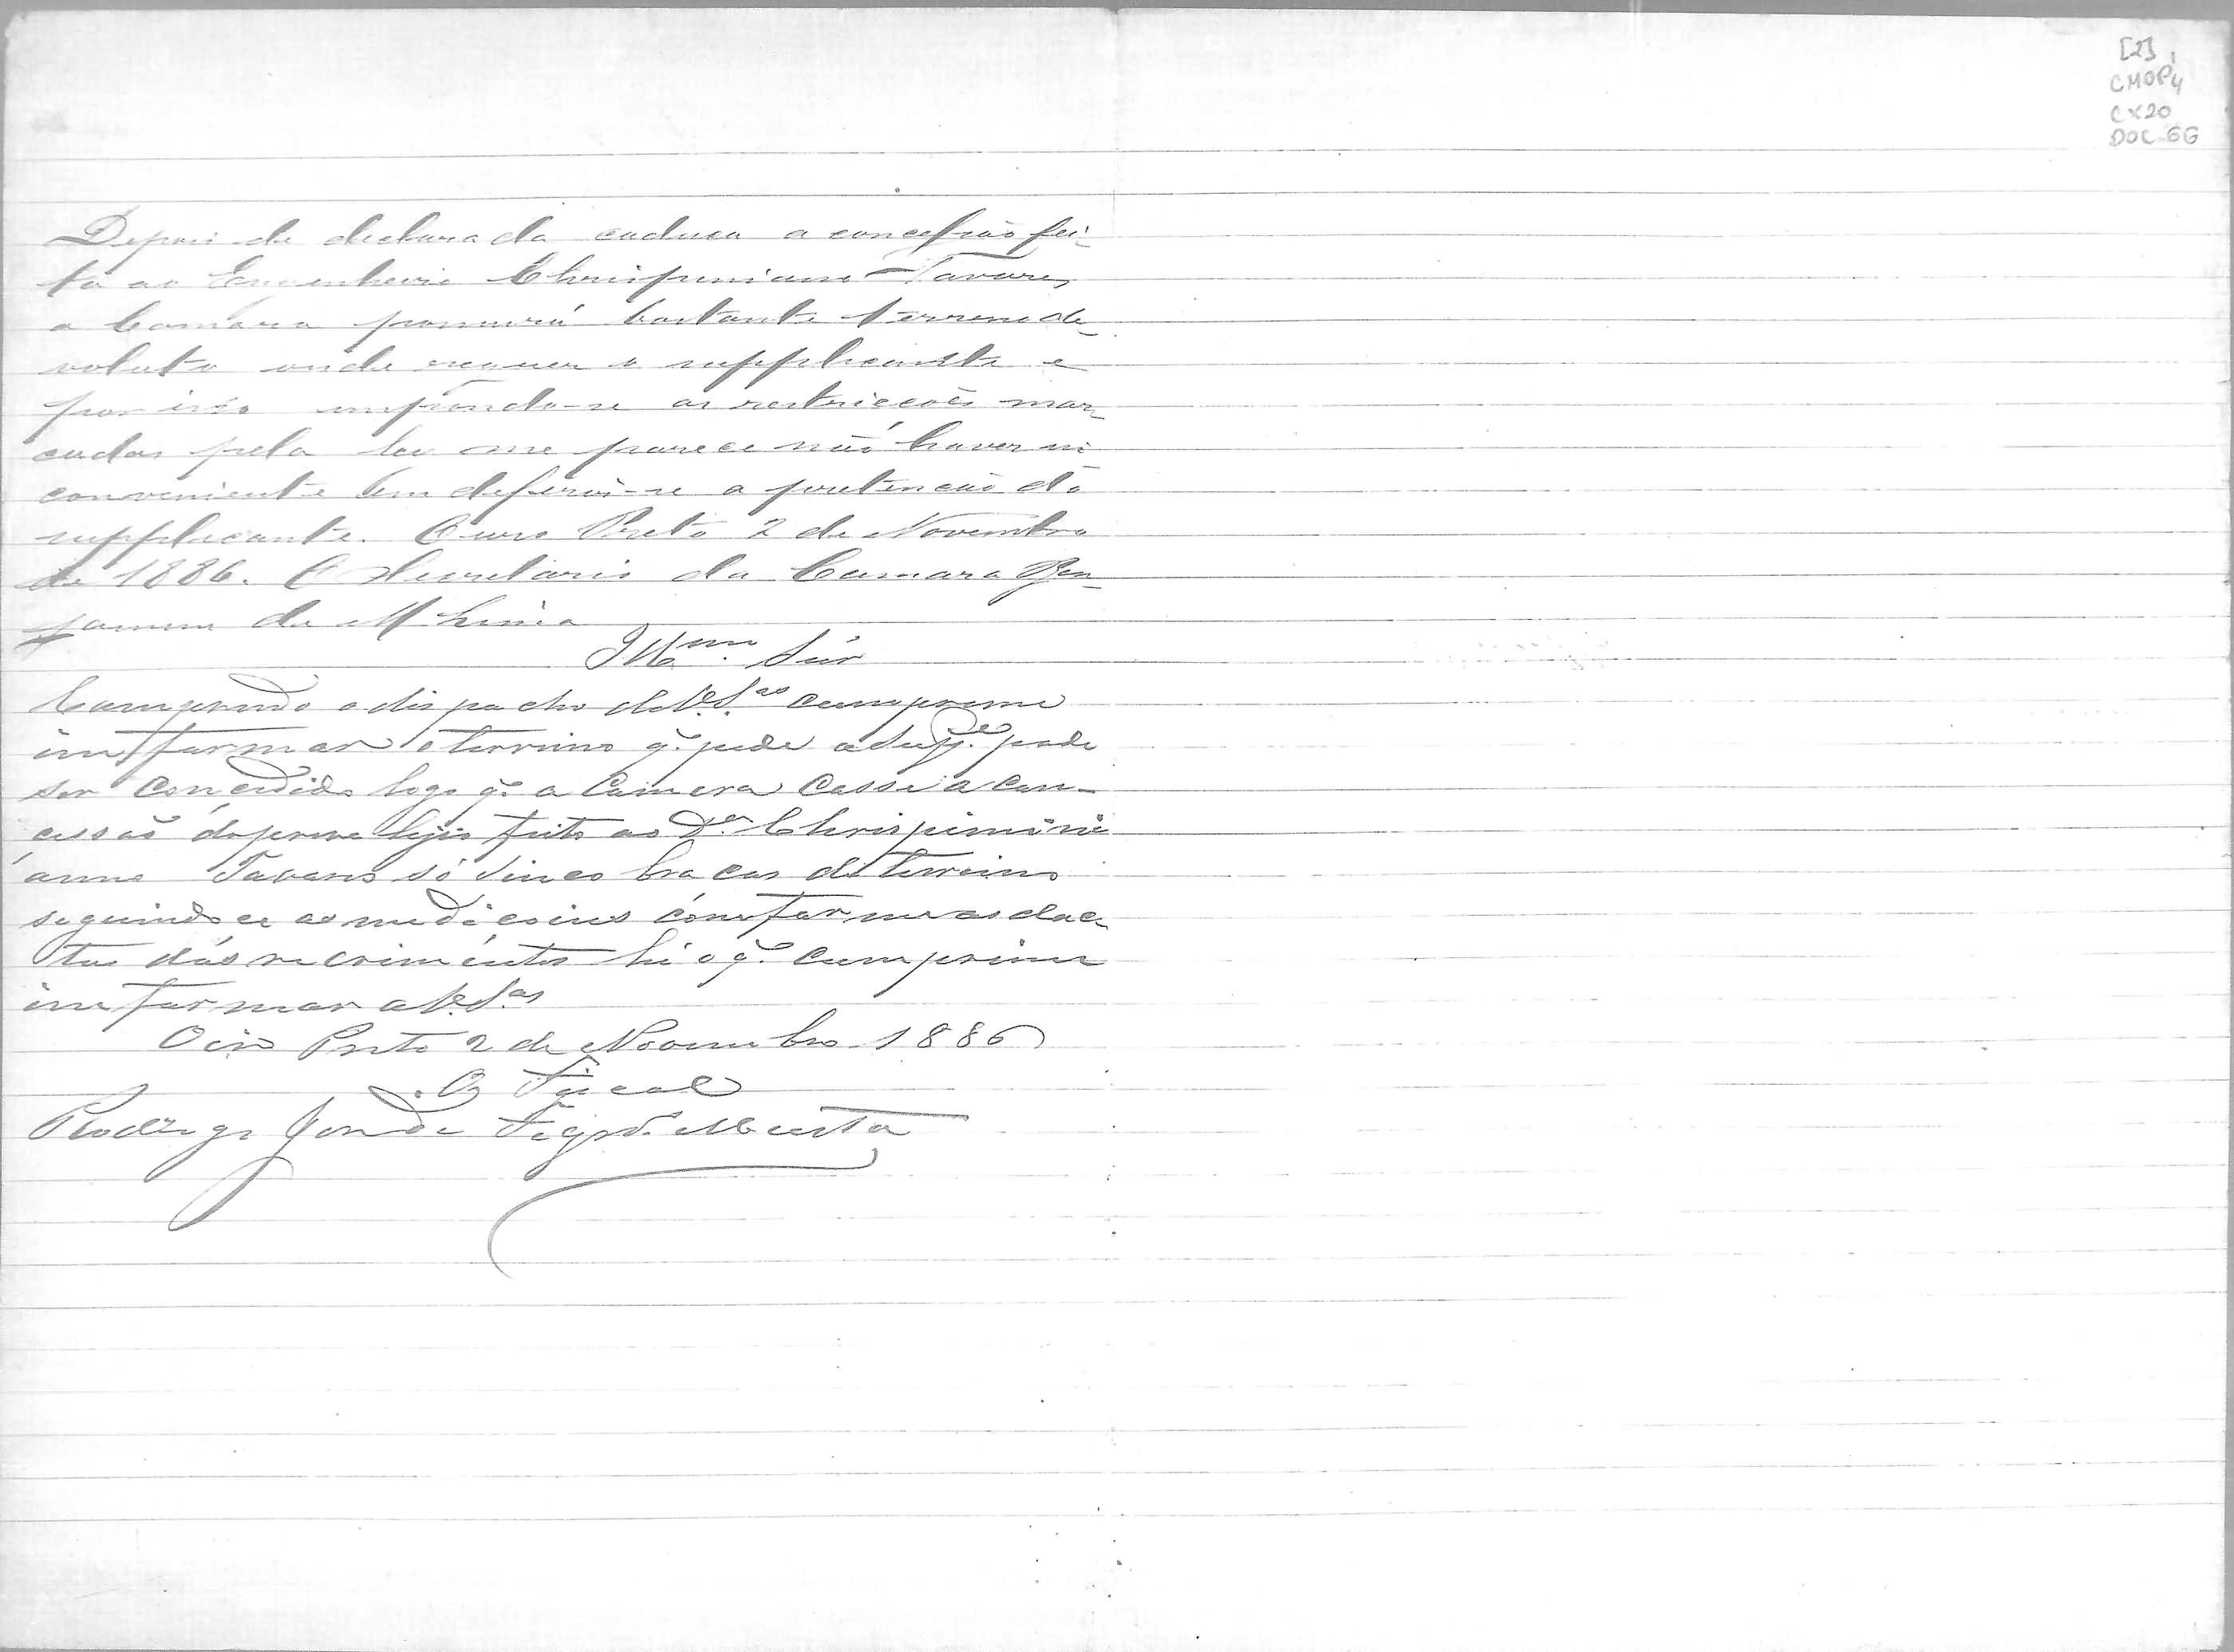 [2]
CMOP
CX20
DOC 66
Depois de declarada caduca a concessão fei-
ta ao Engenheiro Chrispiniano Tavares,
a Camara possuirá bastante terreno de-
voluto onde requer o supplicante e
por isso impondo-se as restricções mar-
cadas pela lei me parece não haver in
conveniente em deferir-se a pretenção do
supplicante. Ouro Preto 2 de Novembro
de 1886. O Secretario da Camara
de
Illmo. Snr
Comprindo o dispacho de V.Sas compreme
imformar o terrino q. pede a Supe. pode
ser concedido logo q. a Camera casse a con-
cessaõ do feito ao Dr. Chrispimini
anno Tavares só sinco bracas de terreino
seguindo ce as medicoius comforme as dac
tas dos recrimentos hé o q. cumprime
imformar a V.Sas
Oiro Preto 2 de Novembro 1886
O Fiscal
Rodrigo José de Figdo. Murta